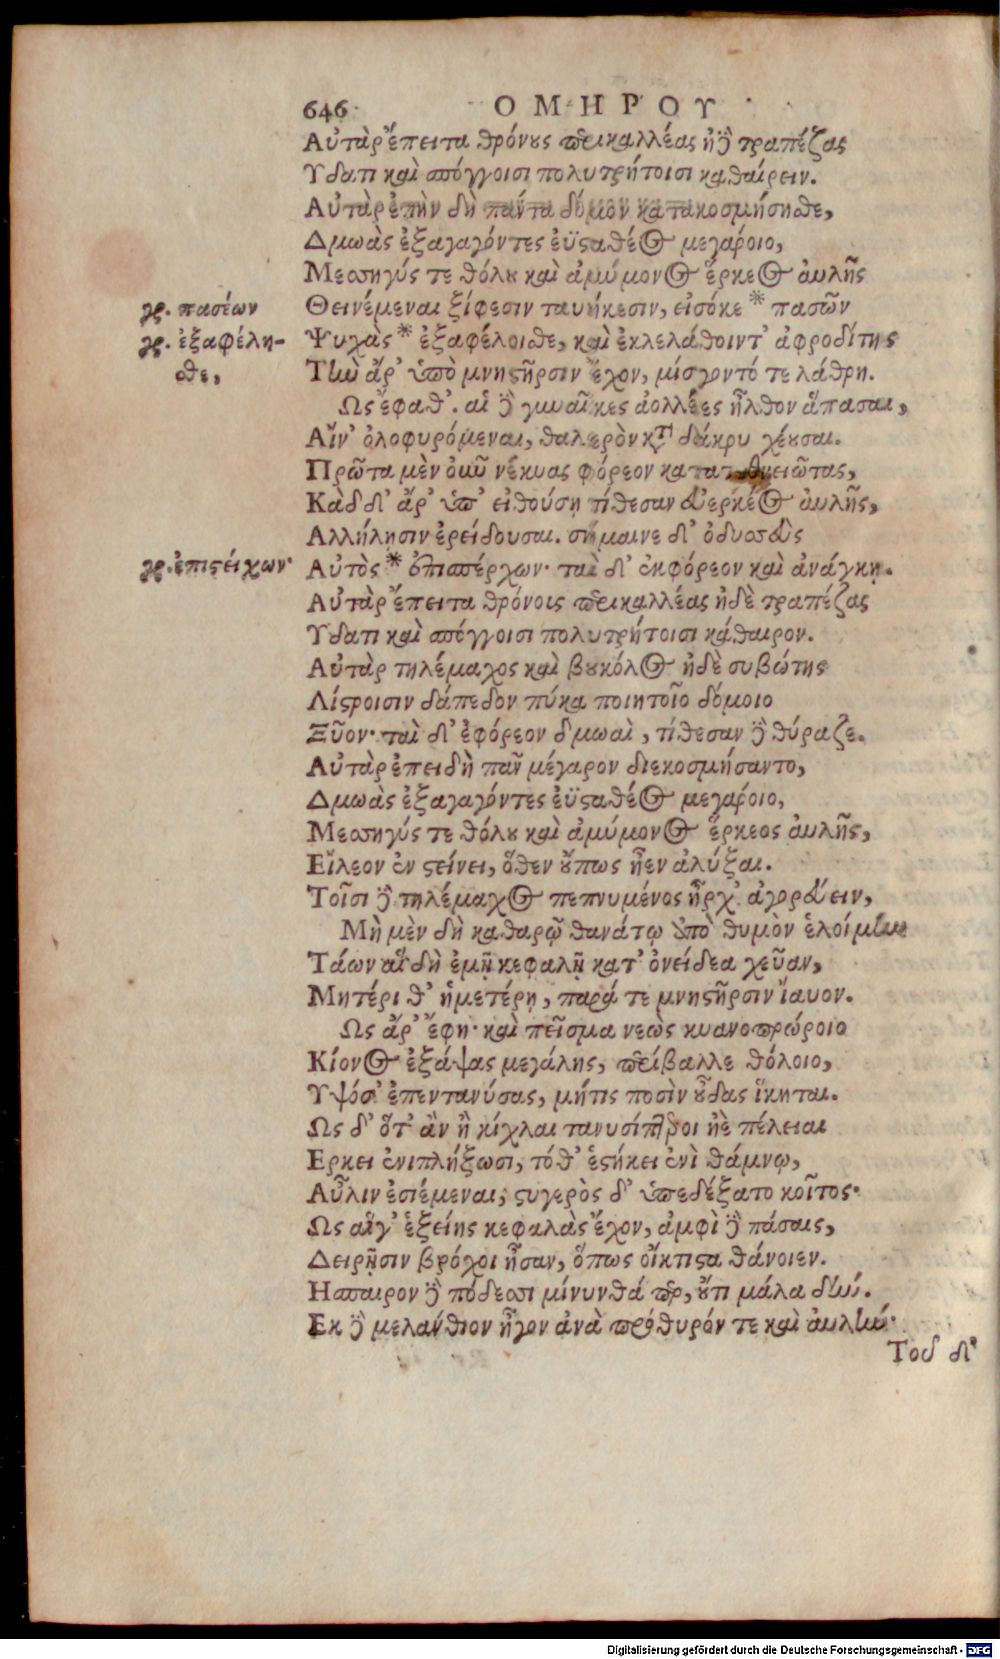 646 ΟΜΗΡΟΥ
Αὐτὰρ ἔπειτα θρόνους περικαλλέας ἠδὲ τραπέζας
Υδατι καὶ σπόγγοισι πολυτρήτοισι καθαίρειν.
Αὐτὰρ ἐπὴν δὴ πάντα δόμον κατακοσμήσησθε,
Δμωὰς ἐξαγαγόντες ἐϋσταθέος μεγάροιο,
Μεσσηγύς τε θόλου καὶ ἀμύμονος ἕρκεος αὐλῆς
γρ. πασέων Θεινέμεναι ξίφεσιν ταυήκεσιν, εἰσόκε * πασῶν
γρ. ἐξαφέλη- Ψυχὰς * ἐξαφέλοισθε, καὶ ἐκλελάθοιντ' ἀφροδίτης
σθε, Τὴν ἄρ' ὑπὸ μνηστῆρσιν ἔχον, μίσγοντό τε λάθρη.
Ως ἔφαθ'. αἱ δὲ γυναῖκες ἀολλέες ἦλθον ἅπασαι,
Αἴν' ὀλοφυρόμεναι, θαλερὸν κατὰ δάκρυ χέουσαι.
Πρῶτα μὲν οὖν νέκυας φόρεον κατατεθνειῶτας,
Κὰδ δ' ἄρ' ὑπ' εἰθούση τίθεσαν εὐερκέος αὐλῆς,
Αλλήλησιν ἐρείδουσαι. σήμαινε δ' ὀδυσσεὺς
γρ. ἐπιστείχων· Αὐτὸς * ἐπισπέρχων· ταὶ δ' ἐκφόρεον καὶ ἀνάγκῃ.
Αὐτὰρ ἔπειτα θρόνοις περικαλλέας ἠδὲ τραπέζας
Υδατι καὶ σπόγγοισι πολυτρήτοισι κάθαιρον.
Αὐτὰρ τηλέμαχος καὶ βουκόλος ἠδὲ συβώτης
Λίστροισιν δάπεδον πύκα ποιητοῖο δόμοιο
Ξῦον· ταὶ δ' ἐφόρεον δμωαὶ, τίθεσαν δὲ θύραζε.
Αὐτὰρ ἐπειδὴ πᾶν μέγαρον διεκοσμήσαντο,
Δμωὰς ἐξαγαγόντες ἐϋσταθέος μεγάροιο,
Μεσσηγύς τε θόλου καὶ ἀμύμονος ἕρκεος αὐλῆς,
Εἴλεον ἐν στείνει, ὅθεν οὔπως ἦεν ἀλύξαι.
Τοῖσι δὲ τηλέμαχος πεπνυμένος ἦρχ' ἀγορεύειν,
Μὴ μὲν δὴ καθαρῷ θανάτῳ ἀπὸ θυμὸν ἑλοίμην
Τάων αἳ δὴ ἐμῇ κεφαλῇ κατ' ὀνείδεα χεῦαν,
Μητέρι θ' ἡμετέρῃ, παρά τε μνηστῆρσιν ἴαυον.
Ως ἄρ' ἔφη· καὶ πεῖσμα νεὼς κυανοπρώροιο
Κίονος ἐξάψας μεγάλης, περίβαλλε θόλοιο,
Υψόσ' ἐπεντανύσας, μήτις ποσὶν οὖδας ἵκηται.
Ως δ' ὅτ' ἂν ἢ κίχλαι τανυσίπτεροι ἠὲ πέλειαι
Ερκει ἐνιπλήξωσι, τόθ' ἑστήκει ἐνὶ θάμνῳ,
Αὖλιν ἐσιέμεναι, στυγερὸς δ' ὑπεδέξατο κοῖτος·
Ως αἵγ' ἑξείης κεφαλὰς ἔχον, ἀμφὶ δὲ πάσαις,
Δειρῇσιν βρόχοι ἦσαν, ὅπως οἴκτιστα θάνοιεν.
Ησπαιρον δὲ πόδεσσι μίνυνθά περ, οὔτι μάλα δήν.
Εκ δὲ μελάνθιον ἦγον ἀνὰ πρόθυρόν τε καὶ αὐλήν·
Τοῦ δ'
Digitalisierung gefördert durch die Deutsche Forschungsgemeinschaft - DFG